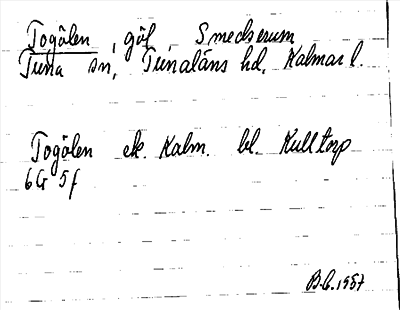 Togölen, göl, Smedserum
Tuna sn, Tunaläns hd, Kalmar l.
Togölen ek. Kalm. bl. Kulltorp
6G 5f
B.L. 1957